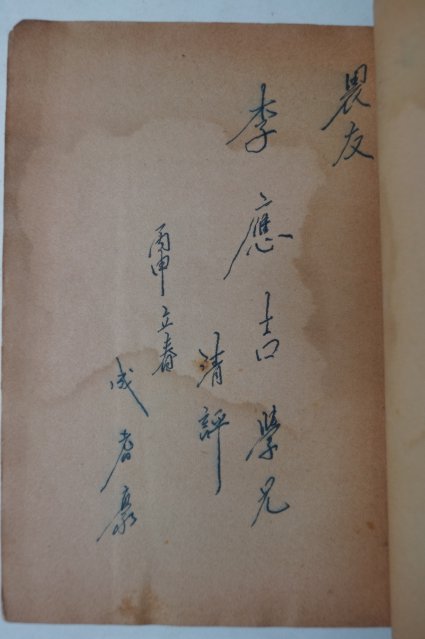 畏友
李應吉學兄
清評
丙申立春
成耆豪